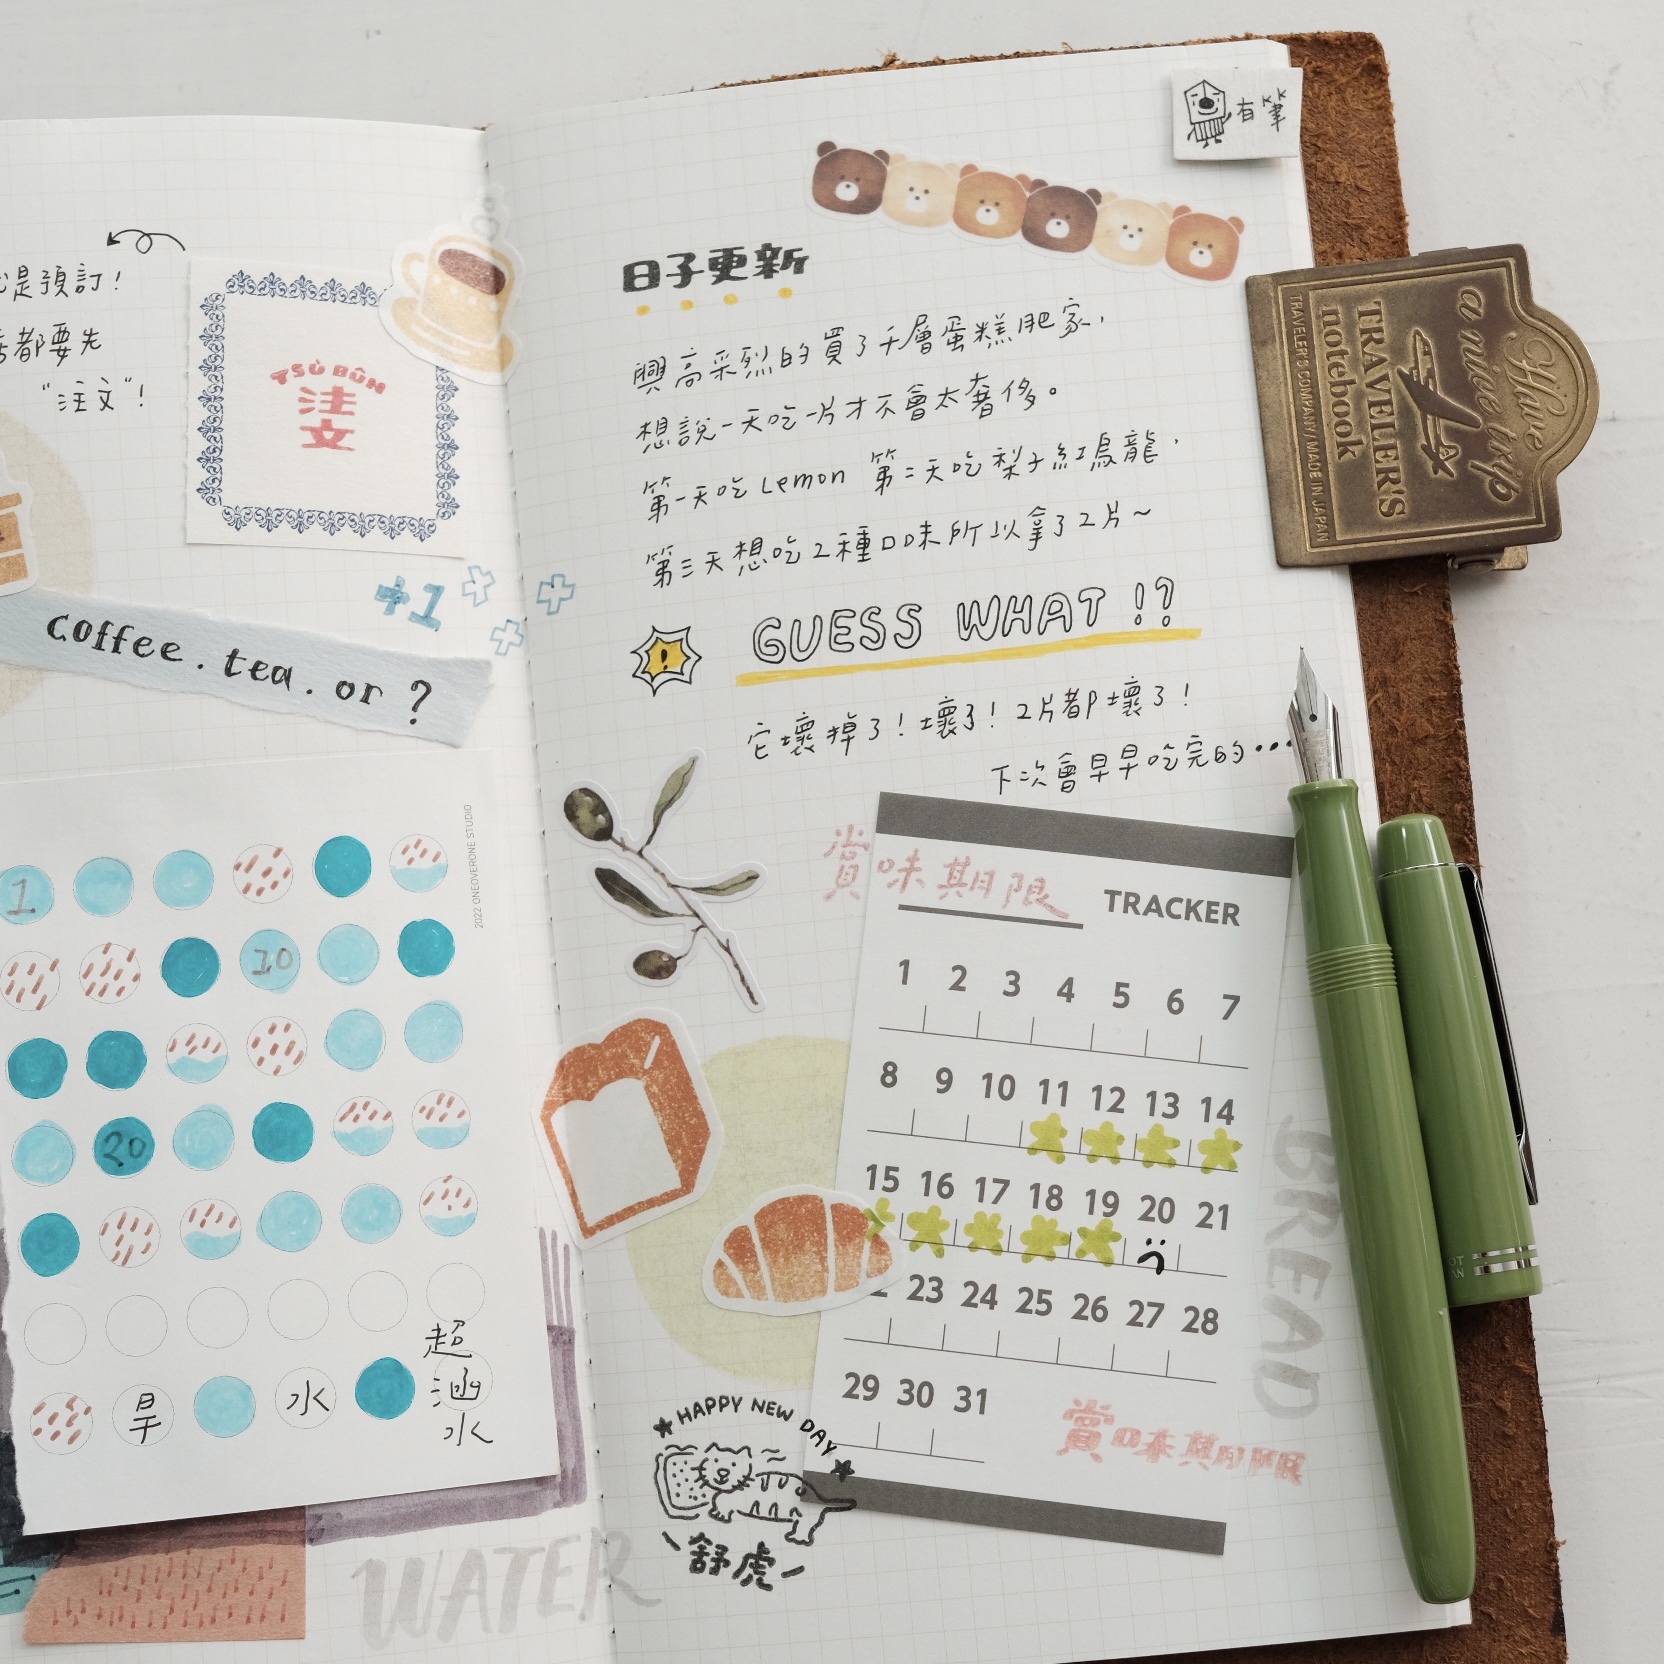 是預訂！
都要先
"注文"！
TSÙ BÛN
注
文
+1
coffee. tea. or ?
2022 ONEOVERONE STUDIO
1
10
20
旱
水
超
涵
水
WATER
有筆
日子更新
興高采烈的買了千層蛋糕肥家，
想說一天吃一片才不會太奢侈。
第一天吃 Lemon 第二天吃梨子紅烏龍，
第三天想吃2種口味所以拿了2片～
!
GUESS WHAT !?
它壞掉了！壞了！2片都壞了！
下次會早早吃完的•••
賞味期限 TRACKER
1 2 3 4 5 6 7
8 9 10 11 12 13 14
15 16 17 18 19 20 21
23 24 25 26 27 28
29 30 31
賞味期限
BREAD
HAPPY NEW DAY
舒虎
Have
a nice trip
TRAVELER'S
notebook
TRAVELER'S COMPANY / MADE IN JAPAN